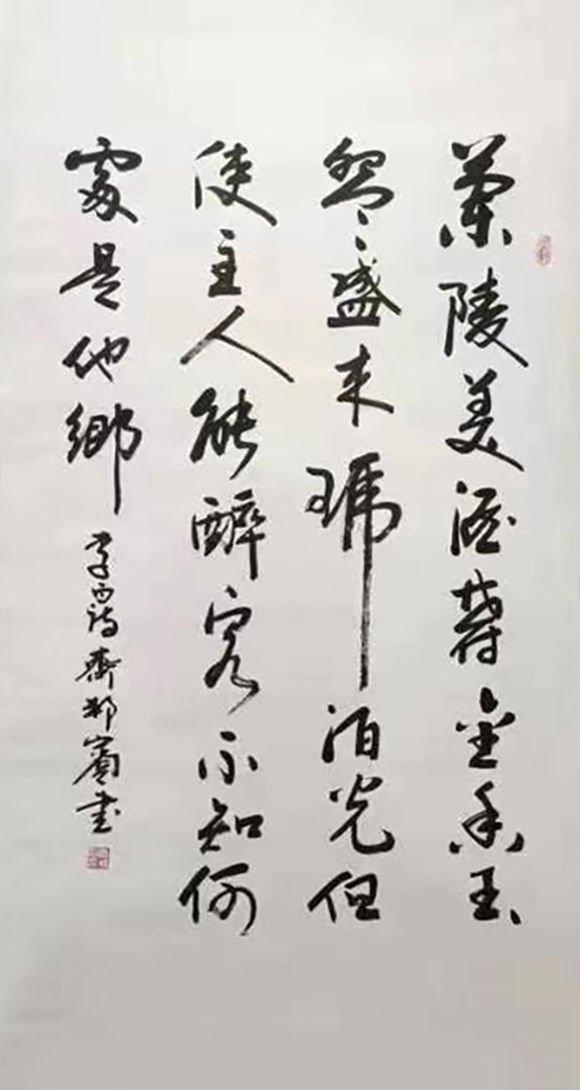 蘭陵美酒鬱金香玉
盌盛来琥珀光但
使主人能醉客不知何
處是他鄉
李白詩 賓書